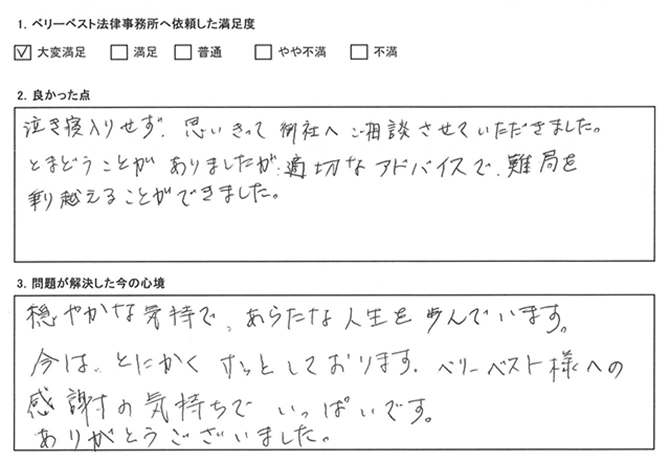 1. ベリーベスト法律事務所へ依頼した満足度
大変満足 満足 普通 やや不満 不満
2. 良かった点
泣き寝入りせず、思いきって御社へご相談させていただきました。
とまどうことがありましたが、適切なアドバイスで、難局を
乗り越えることができました。
3. 問題が解決した今の心境
穏やかな気持で、あらたな人生を歩んでいます。
今は、とにかくホッとしております。ベリーベスト様への
感謝の気持ちでいっぱいです。
ありがとうございました。